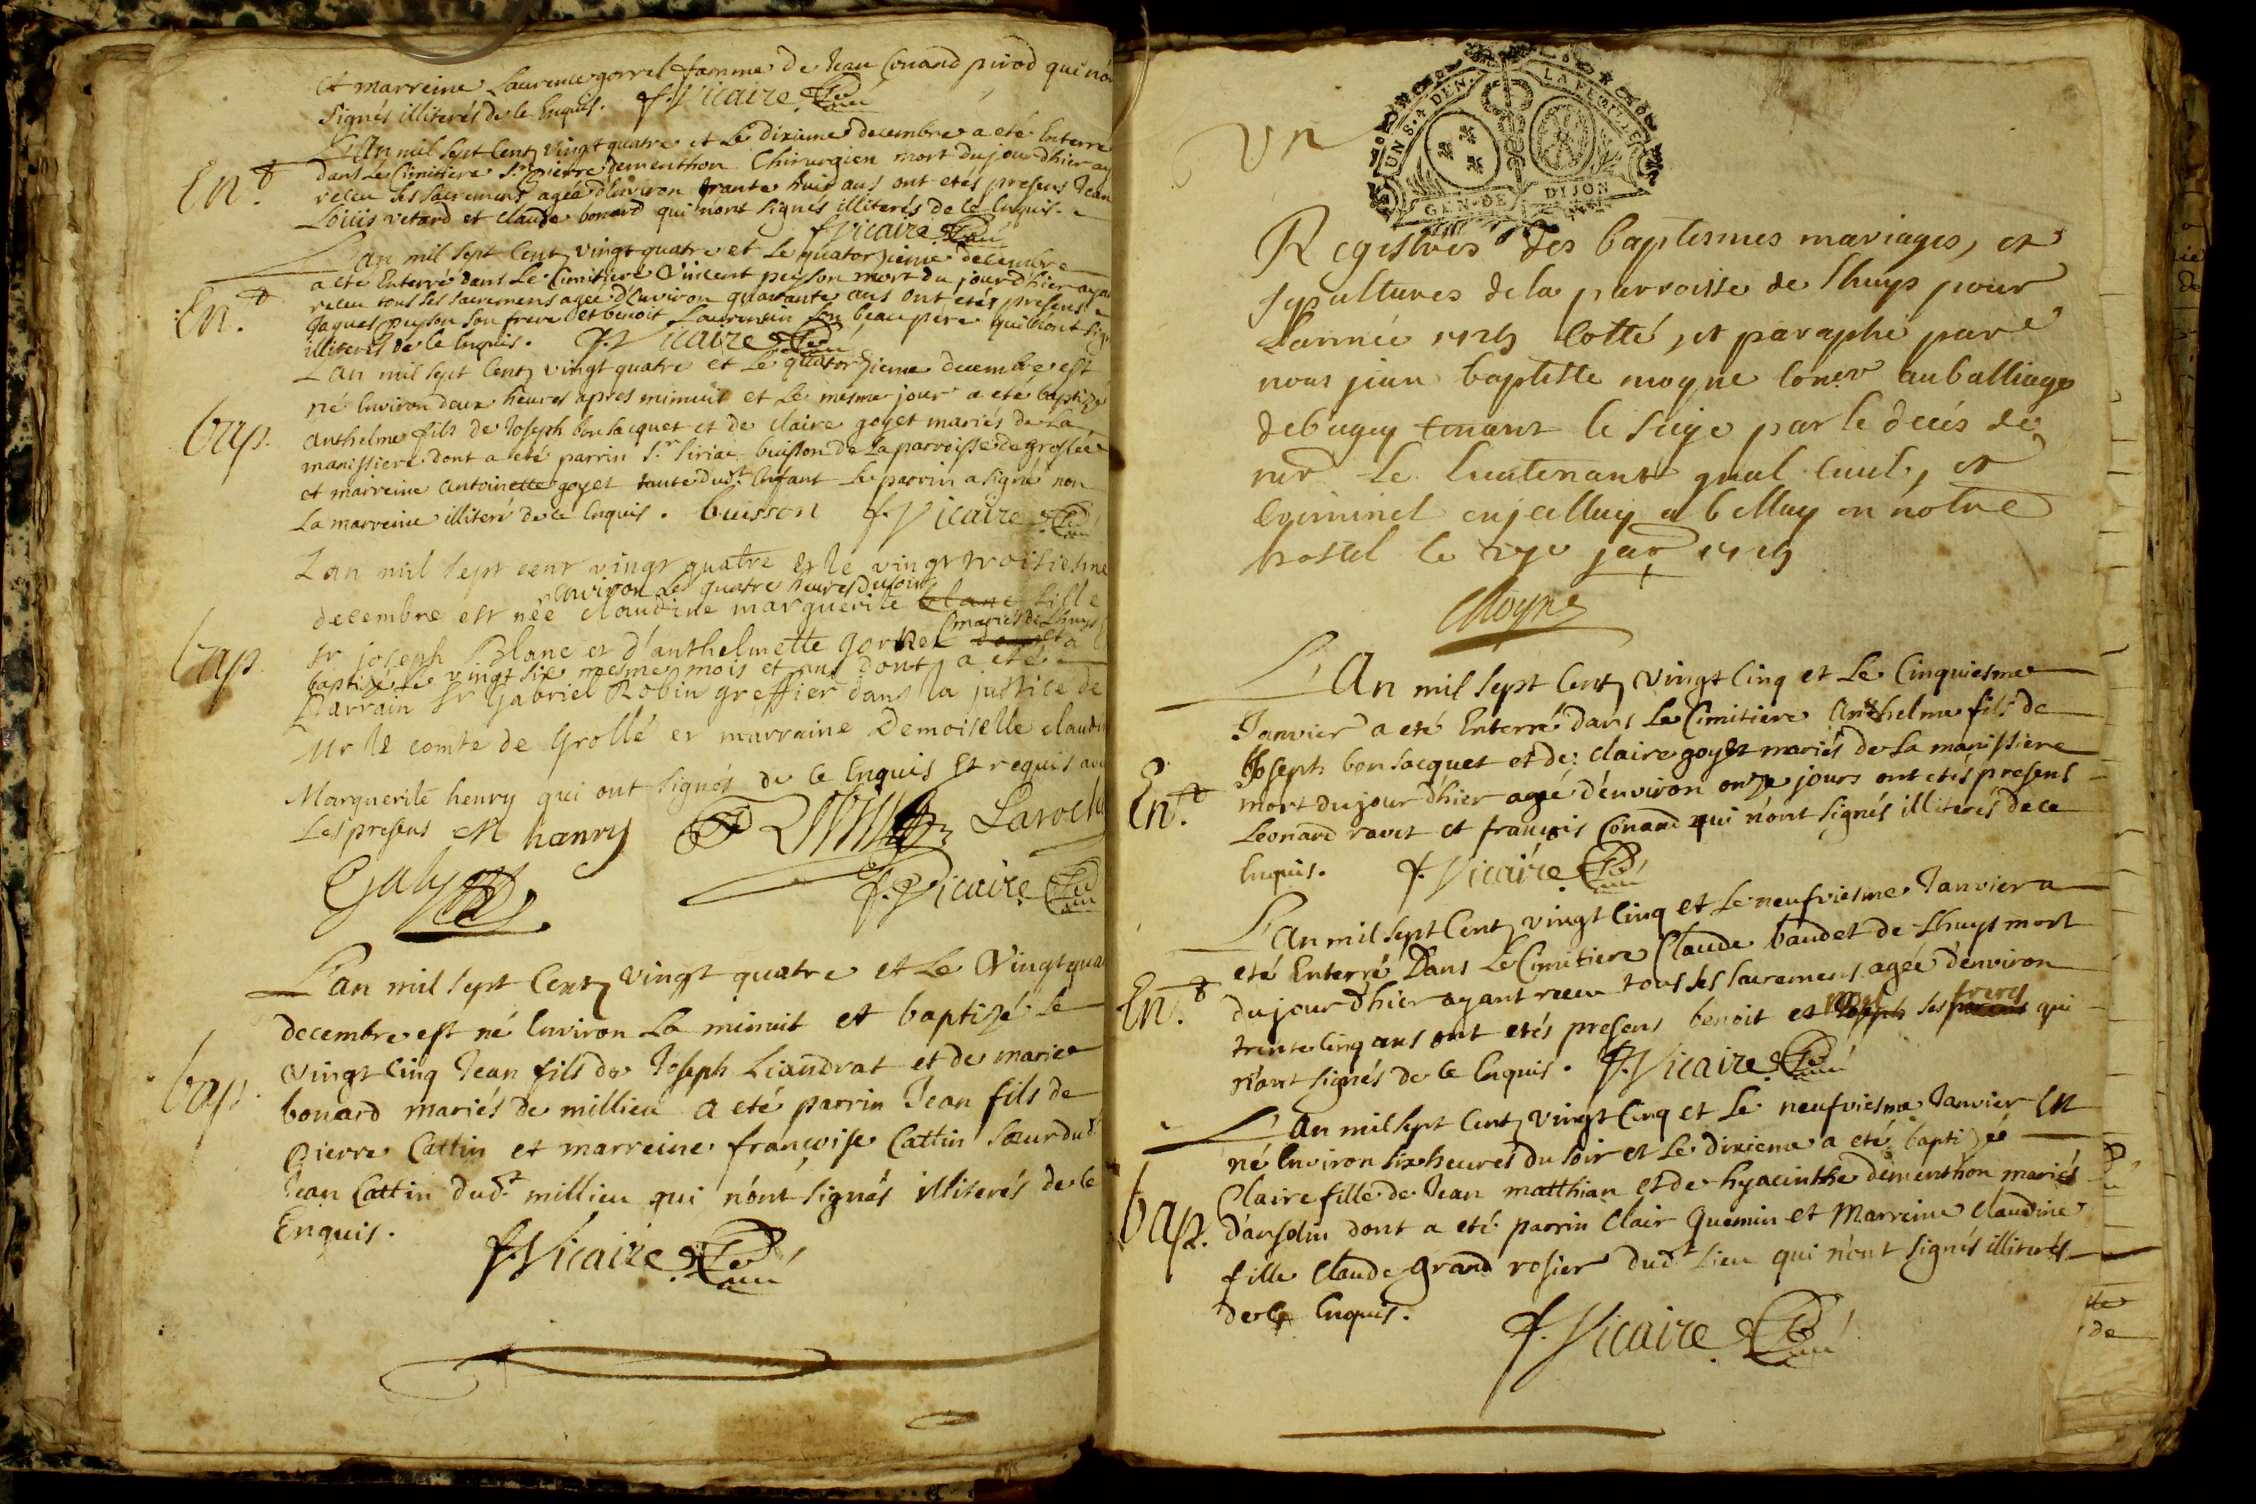 et marreine Laurence gorrel famme de Jean Conand pivod qui n'ó
signés illiterés de ce Enquis. f. Vicaire
En.t
L'An mil sept Cent vingt quatre et Le dixieme decembre a eté Enterré
dans Le Cimitiere Sr. Pierre dementhon Chirurgien mort du jour d'hier ay
receu ses sacremens agée d'Environ trante huit ans ont etés presens Jean
Loüis vetard et Claude bonard qui n'ont signés illiterés de ce Enquis.
f. Vicaire
En.t
L'an mil sept Cent vingt quatre et Le quatorzieme decembre
a eté Enterré dans Le Cimitiere Vincent peyson mort du jour d'hier aya
receu tous ses sacremens agée d'Environ quarante ans ont etés presens
Jaques peyson son frere et benoit son beau pere qui n'ont sig
illiterés de ce Enquis. f. Vicaire
bap.
L'an mil sept Cent vingt quatre et Le quatorzieme decembre est
né Environ deux heures apres minuit et Le mesme jour a eté baptizé
Anthelme fils de Joseph bon Jacquet et de Claire goyet mariés de La
manissiere dont a eté parrin Sr. Siriac buisson de La parroisse de groslée
et mairreine Antoinette goyet tante dud.t Enfant Le parrin a signé non
La marreine illiteré de ce Enquis. buisson f. Vicaire
bap.
Lan mil sept cent vingt quatre et le vingt troisiesme
environ Les quatre heures du soir
decembre est née claudine marguerite blanc fille
mariés de Lhuys
Sr joseph Blanc et d'anthelmette gorrel dont a
baptizé le vingt six mesme mois et an dont a eté
Parrain Sr Gabriel Robin greffier dans la justice de
Mr le comte de Grollé et marraine Demoiselle claudin
Marguerite henry qui ont signés de ce Enquis Et requis avec
Les presens M henry Laroch
f. Vicaire
bap.
L'an mil sept Cent vingt quatre et Le Vingt qua
decembre est né Environ La minuit et baptizé Le
Vingt Cinq Jean fils de Joseph Liandrat et de marie
bonard mariés de millieu a eté parrin Jean fils de
Pierre Cattin et marreine francoise Cattin sœur dud.
Jean Cattin dud.t millieu qui n'ónt signés illiterés de ce
Enquis.
f. Vicaire
Un
UN S. 4 DEN. LA FEUILLE
GEN. DE DIJON
Registres des baptesmes mariages, et
sepultures de la parroisse de Lhuys pour
L'année 1725 Cotté, et paraphé par
nous jean baptiste moyne Coner au balliage
debugey tenant le siege par le deces de
mr Le Lieutenant gnal Civil, et
Criminel en jcelluy a belley en notre
hostel le janr 1725
Moyne
En.t
L'An mil sept Cent vingt Cinq et Le Cinquiesme
Janvier a eté Enterré dans Le Cimitiere Anthelme fils de
Joseph bon Jacquet et de Claire goyet mariés de La manissiere
mort du jour d'hier agé d'environ onze jours ont etés presens
Léonard ravet et françois Conand qui n'ónt signés illiterés de ce
Enquis. f. Vicaire
En.t
L'an mil sept Cent vingt Cinq et Le neufviesme Janvier a
eté Enterré Dans Le Cimitiere Claude baudet de Lhuys mort
du jour d'hier ayant receu tous ses sacremens agée d'environ
freres
trente Cinq ans ont etés presens benoit et Joseph ses parens qui
n'ont signés de ce Enquis. f. Vicaire
bap.
L'an mil sept Cent vingt Cinq et Le neufviesme Janvier En
né Environ six heures du soir et Le dixieme a eté baptizée
Claire fille de Jean matthian et de hyacinthe dementhon mariés
d'ansolin dont a eté parrin Clair Quemin et Marreine Claudine
fille Claude grand rosier dud.t Lieu qui n'ónt signés illiterés
de ce Enquis.
f. Vicaire
de